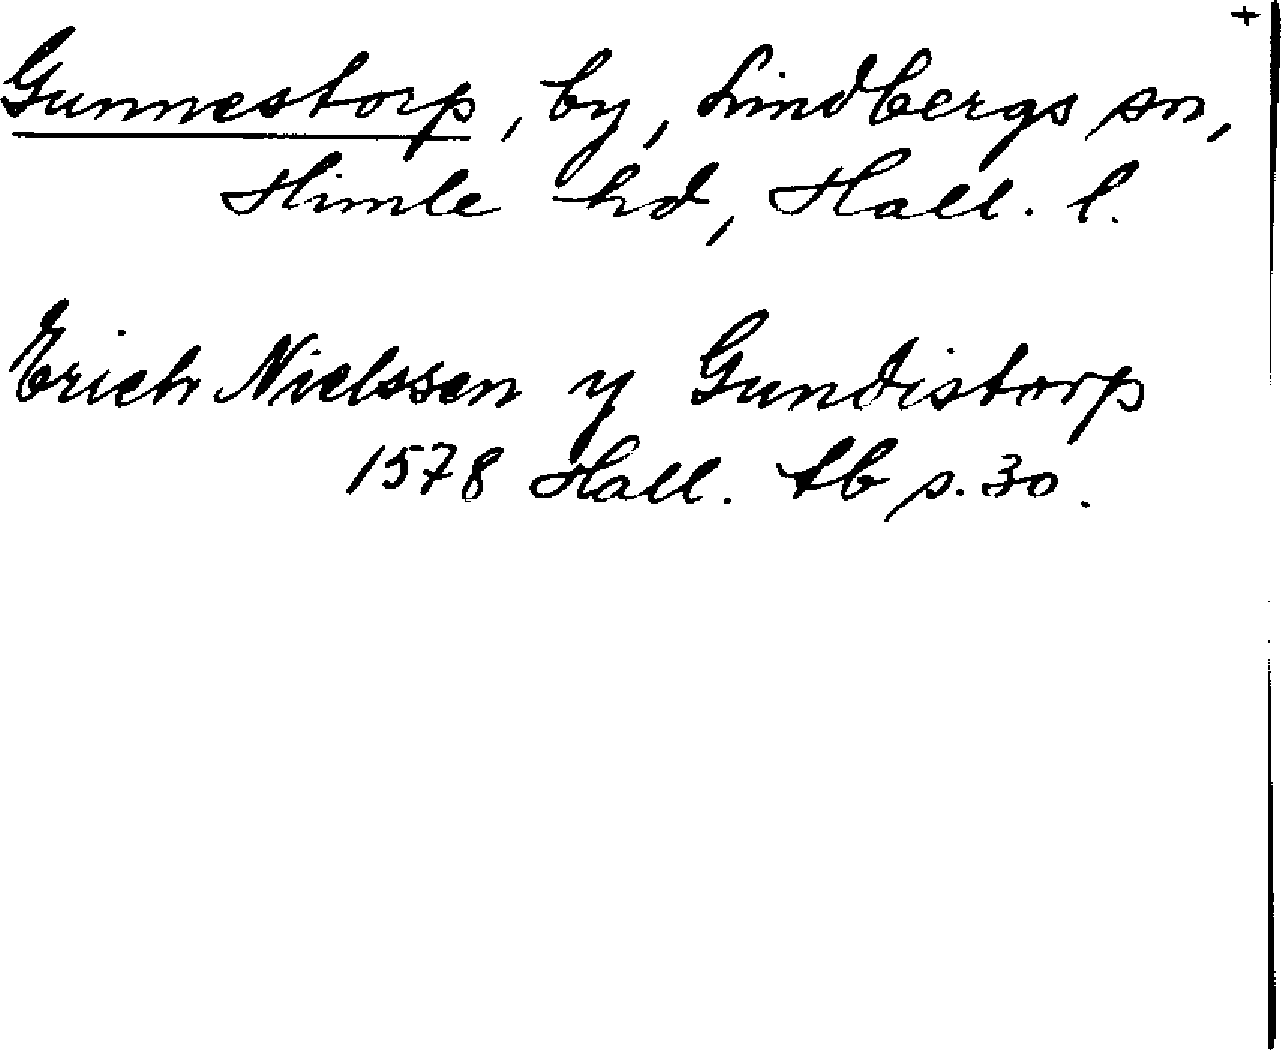 +
Gunnestorp, by, Lindbergs sn,
Himle hd, Hall. l.
Erich Nielssen y Gundistorp
1578 Hall. tb s. 30.